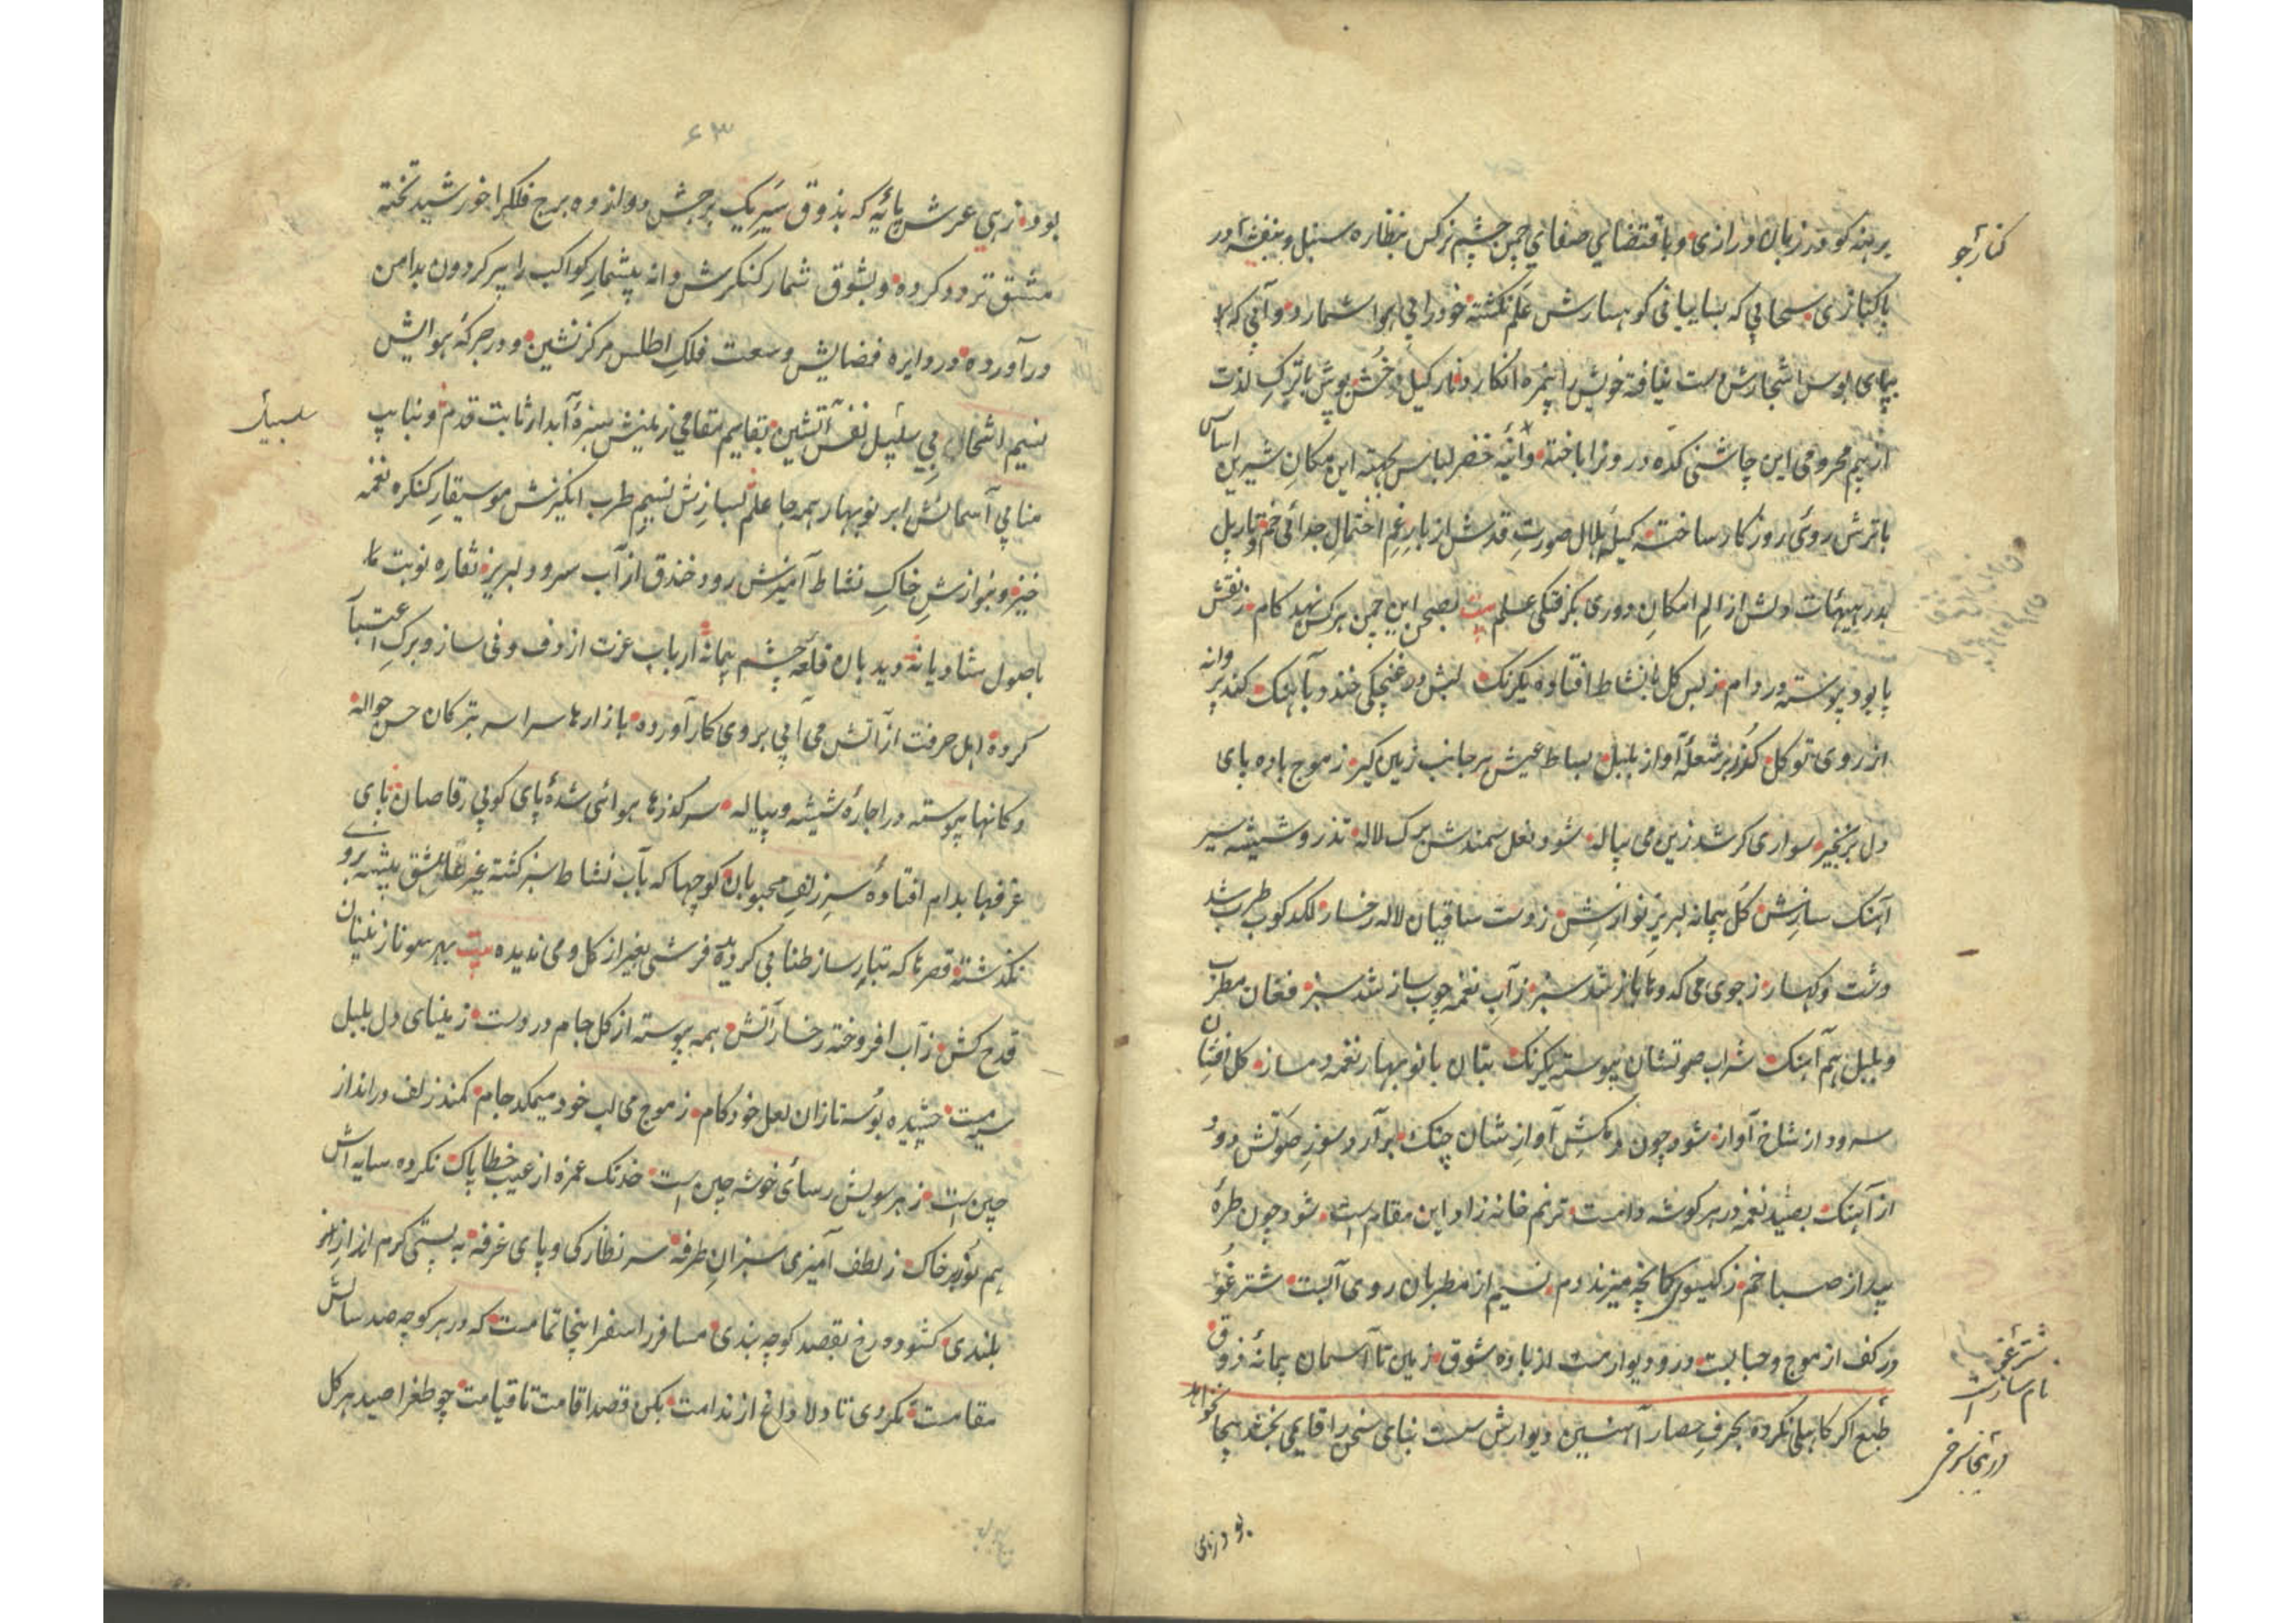 برهنه کو در زبان درازی و باقتضای صفای چمن چشم نرکس بنظاره سنبل و بنفشه در
پاکبازی سحابی که بسایبانی کوهسارش علم نکشته خود را بی هوا شمارد و آبی که
بپای بوس اشجارش دست نیافته خویش را بثمره انکارد نارکیل خش پوش با ترک لذت
از بیم محرومی این چاشنی کده در و ترا باخته و خضر لباس بجهته این مکان شیرین اساس
با ترش روئی روزکار ساخته کیله هلال صورت قدش از بار غم احتمال جدائی خم و تاریل
بدر هیهات دلش از الم امکان دوری بکرفتکی علم بیت بصحن این چمن هرکس نهد کام ز نقش
پا بود پیوسته در دام ز بس کل با نشاط افتاده یکرنک لبش در غنچکی خندد بآهنک کند پروانه
از روی توکل کذر بر شعله آواز بلبل بساط عیش هر جانب زمین کیر ز موج باده پای
دل بزنجیر سواری کر شد زین می پیاله شود نعل سمندش برک لاله تذرو شیشه سیر
آهنک سازش کل پیمانه لبریز نوازش ز دست ساقیان لاله رخسار لکدکوب طرب شد
دشت و کهسار ز جوی می کدوها باز شد سبز ز آب نغمه چوب ساز شد سبز فغان مطرب
و بلبل هم آهنک شراب صوتشان پیوسته یکرنک بتان با نوبهار نغمه دمساز کل افشان
سرود از شاخ آواز شود چون دلکش آواز شان چنک برآرد سوز صوتش دود
از آهنک بصید نغمه در هر کوشه دامست ترنم خانه زاد این مقام است شود چون طره
بید از صبا خم ز کیسوی کمانچه میزند دم نسیم از مطربان روی آبست شترغو
در کف از موج و حبابست در و دیوار مست از باده شوق زمین تا آسمان پیمانه ذوق
طبع اکر کاهلی نکرده بحرف حصار آهنین دیوارش سست بنای سخن را قایمی بخشد بیجا نخواهد
کنار جو
شترغو
نام ساز است
در تنجا سرخی
بود زهی
۶۳
بود زهی عرش پایه که بذوق سیر یک برجش دوازده برج فلک را خورشید تخته
مشق تردد کرده و بشوق شمار کنکرش دانه بیشمار کواکب را پیر کردون بدامن
درآورده در دایره فضایش وسعت فلک اطلس مرکزنشین و در جرکه هوایش
نسیم اشجار بی سلبیل نفس آتشین بقایم مقامی زمینش سبزه آبدار ثابت قدم و بنایب
منابی آسمانش ابر نوبهار همه جا علم بسازش نسیم طرب انکیزش موسیقار کنکره نغمه
خیز و بنوازش خاک نشاط آمیزش رود خندق از آب سرود لبریز نقاره نوبت
باصول شادیانه دیدبان قلعه چشم پیمانه ارباب عزت از دف و نی ساز و برک اعتبار
کرده اهل حرفت از آتش می آبی بر روی کار آورده بازارها سراسر بترکان حسن حواله
دکانها پیوسته در اجاره شیشه و پیاله سرکذرها هوائی شده پای کوبی رقاصان پای
غرفها بدام افتاده سر زلف محبوبان کوچها که بآب نشاط سبز کشته غیر عاشق پیشه بروی
نکذشته قصرها که بتار ساز طنابی کردیده فرشی بغیر از کل و می ندیده بیت بهر سو نازنینان
قدح کش ز آب افروخته رخسار آتش همه پیوسته از کل جام در دست ز مینای دل بلبل
سیه مست چشیده بوسه تا زان لعل خودکام ز موج می لب خود میمکد جام کمند زلف در انداز
چین است ز هر سویش رسائی خوشه چین است خدنک غمزه از عیب خطا پاک نکرده سایه اش
هم بوسه بر خاک ز لطف آمیزی سبزان طرفه سر نظارکی و پای غرفه به پستی کرم
بلندی کشوده رخ بقصد کوچه بندی مسافر را سفر اینجا تمامست که در هر کوچه صد سالش
مقامست نکردی تا دلا داغ از ندامت بکن قصد اقامت تا قیامت چو طغرا صید هر کل
سلسبیل